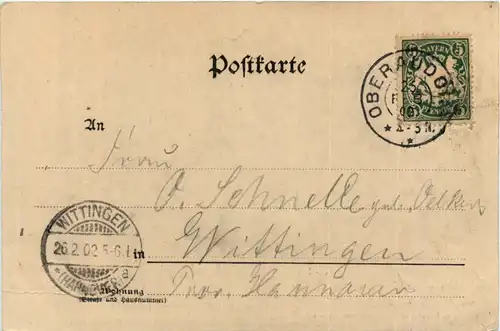 Postkarte
BAYERN 5
OBERAUDORF
An
Frau
O. Schnelle geb. Oelkers
WITTINGEN
26.2.02 5-6.N
in Wittingen
a
* (HANNOVER)
Prov. Hannover
Wohnung
(Straße und Hausnummer)